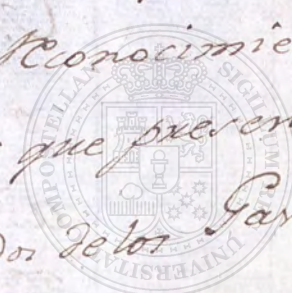 Reconocimie
que presen
dos de los Gas
SIGILLUM UNIVERSITATIS COMPOSTELLAN